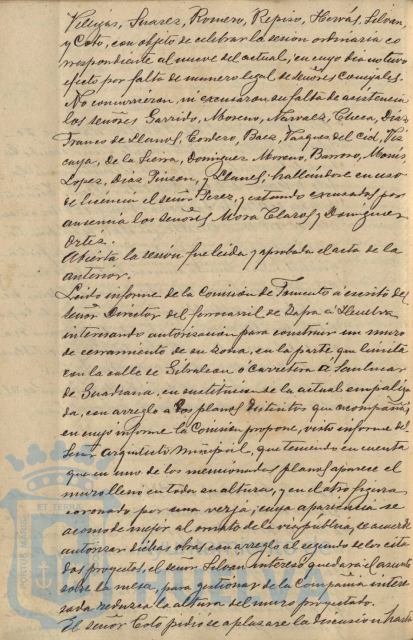 Villegas, Suarez, Romero, Repiso, Hervás, Silván,
y Coto, con objeto de celebrar la sesión ordinaria co
rrespondiente al nueve del actual, en cuyo dia no tuvo
efecto por falta de numero legal de señores Concejales.
No concurrieron ni excusaron su falta de asistencia
los señores Garrido, Moreno, Narvaez, Checa, Diaz
Franco de Llanos, Cordero, Baez, Vazquez del Cid, Viz
caya, de la Sierra, Dominguez Moreno, Barroso, Monis,
Lopez, Diaz Pinzon, y Llanes, hallándose en uso
de licencia el señor Perez, y estando excusados por
ausencia los señores Mora Claros y Dominguez
Ortiz.
Abierta la sesión fue leida y aprobada el acta de la
anterior.
Leido informe de la Comisión de Fomento á escrito del
señor Director del ferrocarril de Zafra á Huelva
interesando autorización para construir un muro
de cerramiento de su zona, en la parte que limita
con la calle de Gibraleon ó carretera de Sanlucar
de Guadiana, en sustitucion de la actual empaliza
da, con arreglo a dos planos distintos que acompaña,
en cuyo informe la Comisión propone, visto informe del
Señor Arquitecto Municipal, que teniendo en cuenta
que en uno de los mencionados planos aparece el
muro lleno en toda su altura, y en el otro figura
coronado por una verja, cuya apariencia se
acomoda mejor al ornato de la via publica, se acuerde
autorizar dichas obras con arreglo al segundo de los cita
dos proyectos, el señor Silván interesó quedara el asunto
sobre la mesa, para gestionar de la Compañia intere
sada reduzca la altura del muro proyectado.
El señor Coto pidió se aplazase la discusion hasta
PORTUS MARIS
ET TERRÆ